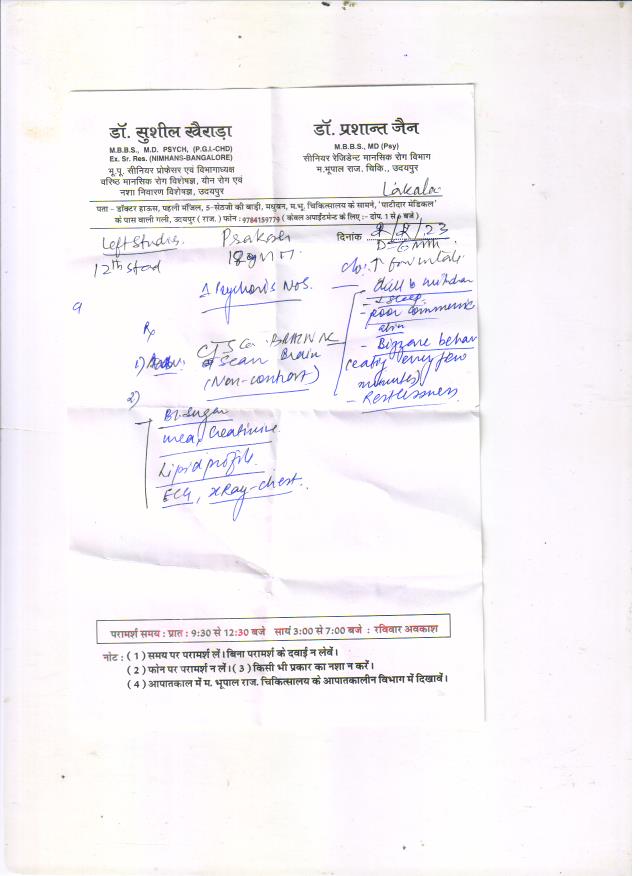 डॉ. सुशील खैराड़ा
M.B.B.S., M.D. PSYCH, (P.G.I.-CHD)
Ex. Sr. Res. (NIMHANS-BANGALORE)
भू.पू. सीनियर प्रोफेसर एवं विभागाध्यक्ष
वरिष्ठ मानसिक रोग विशेषज्ञ, यौन रोग एवं
नशा निवारण विशेषज्ञ, उदयपुर
डॉ. प्रशान्त जैन
M.B.B.S., MD (Psy)
सीनियर रेजिडेन्ट मानसिक रोग विभाग
म.भूपाल राज. चिकि., उदयपुर
Lakala
पता - डॉक्टर हाऊस, पहली मंजिल, 5-सेठजी की बाड़ी, मधुबन, म.भू. चिकित्सालय के सामने, 'पाटीदार मेडिकल'
के पास वाली गली, उदयपुर ( राज. ) फोन : 9784159779 ( केवल अपाईंटमेन्ट के लिए :- दोप. 1 से 6 बजे )
Left Studies. Prakash दिनांक 2/2/23
12th Stad 18y M
Psychosis NOS.
- dull & withdrawn
- ↓ sleep.
- poor communic
ation
- Bizzare behav
(eating every few
minutes)
- Restlessness
Rx
1)
Scan Brain
(Non-contrast)
2)
Bl. Sugar
Urea, Creatinine
Lipid profile.
ECG, xRay-chest.
परामर्श समय : प्रात : 9:30 से 12:30 बजे सायं 3:00 से 7:00 बजे : रविवार अवकाश
नोट : ( 1 ) समय पर परामर्श लें। बिना परामर्श के दवाई न लेवें।
( 2 ) फोन पर परामर्श न लें। ( 3 ) किसी भी प्रकार का नशा न करें।
( 4 ) आपातकाल में म. भूपाल राज. चिकित्सालय के आपातकालीन विभाग में दिखावें।